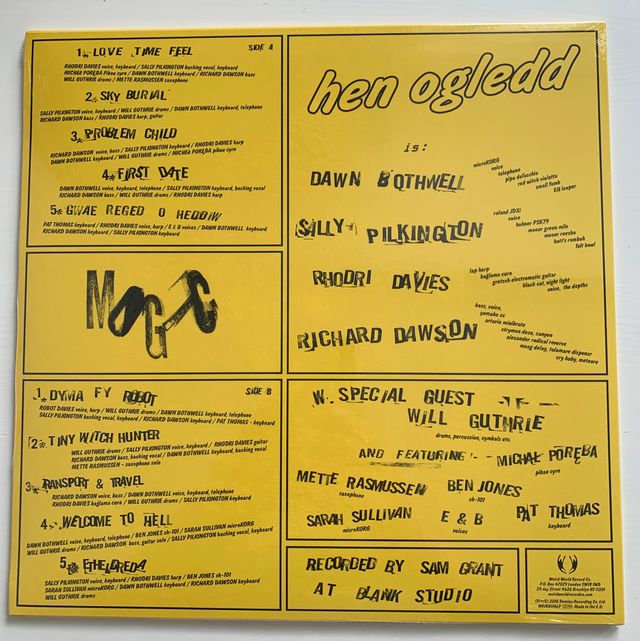 1. LOVE TIME FEEL SIDE A
RHODRI DAVIES voice, keyboard / SALLY PILKINGTON backing vocal, keyboard
MICHAŁ PORĘBA Pibau cyrn / DAWN BOTHWELL keyboard / RICHARD DAWSON bass
WILL GUTHRIE drums / METTE RASMUSSEN saxophone
2. SKY BURIAL
SALLY PILKINGTON voice, keyboard / WILL GUTHRIE drums / DAWN BOTHWELL keyboard, telephone
RICHARD DAWSON bass / RHODRI DAVIES harp, guitar
3. PROBLEM CHILD
RICHARD DAWSON voice, bass / SALLY PILKINGTON keyboard / RHODRI DAVIES harp
DAWN BOTHWELL keyboard / WILL GUTHRIE drums / MICHAŁ PORĘBA pibau cyrn
4. FIRST DATE
DAWN BOTHWELL voice, keyboard, telephone / SALLY PILKINGTON keyboard, backing vocal
RICHARD DAWSON bass / WILL GUTHRIE drums / RHODRI DAVIES harp
5. GWAE REGED O HEDDIW
PAT THOMAS keyboard / RHODRI DAVIES voice, harp / E & B voices / DAWN BOTHWELL keyboard
RICHARD DAWSON keyboard / SALLY PILKINGTON keyboard
MOGIC
1. DYMA FY ROBOT SIDE B
ROBOT DAVIES voice, harp / WILL GUTHRIE drums / DAWN BOTHWELL keyboard, telephone
SALLY PILKINGTON backing vocal, keyboard / RICHARD DAWSON keyboard / PAT THOMAS - keyboard
2. TINY WITCH HUNTER
WILL GUTHRIE drums / SALLY PILKINGTON voice, keyboard / RHODRI DAVIES guitar
RICHARD DAWSON bass, backing vocal / DAWN BOTHWELL keyboard, backing vocal
METTE RASMUSSEN - saxophone solo
3. TRANSPORT & TRAVEL
RICHARD DAWSON voice, bass / DAWN BOTHWELL voice, keyboard, telephone
RHODRI DAVIES bağlama cura / WILL GUTHRIE drums / SALLY PILKINGTON keyboard
4. WELCOME TO HELL
DAWN BOTHWELL voice, keyboard, telephone / BEN JONES sh-101 / SARAH SULLIVAN microKORG
WILL GUTHRIE drums / RICHARD DAWSON bass, guitar solo / SALLY PILKINGTON backing vocal, keyboard
5. ETHELDREDA
SALLY PILKINGTON voice, keyboard / RHODRI DAVIES harp / BEN JONES sh-101
SARAH SULLIVAN microKORG / DAWN BOTHWELL keyboard / RICHARD DAWSON keyboard
WILL GUTHRIE drums
hen ogledd
is:
DAWN BOTHWELL
microKORG
voice
telephone
pipe dellacchio
red witch violetta
small funk
EH looper
SALLY PILKINGTON
roland JDXi
voice
hohner PSK79
mooer green mile
mooer reecho
hutt's rombah
felt bowl
RHODRI DAVIES
lap harp
bağlama cura
gretsch electromatic guitar
black cat, night light
voice, the depths
RICHARD DAWSON
bass, voice,
yamaha cs
arturia minibrute
strymon deco, canyon
alexander radical reverse
moog delay, talamare dispenser
cry baby, meteore
W. SPECIAL GUEST
WILL GUTHRIE
drums, percussion, cymbals etc.
AND FEATURING - MICHAŁ PORĘBA
pibau cyrn
METTE RASMUSSEN BEN JONES
saxophone sh-101
SARAH SULLIVAN E & B PAT THOMAS
microKORG voices keyboard
RECORDED BY SAM GRANT
AT BLANK STUDIO
Weird World Record Co.
P.O. Box 47029 London SW18 1WD
20 Jay Street #626 Brooklyn NY 11201
weirdworldrecordco.com
(P)+(C) 2018 Domino Recording Co. Ltd.
Made in the E.U.